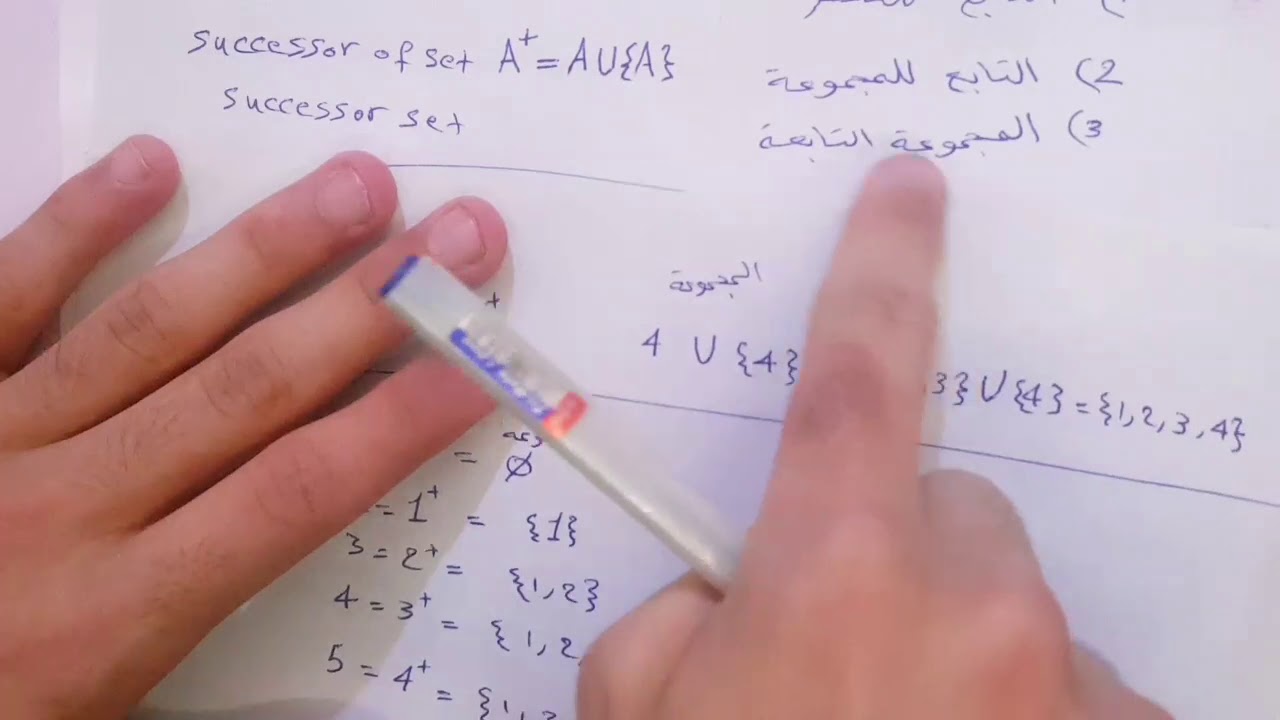 successor of set A⁺ = A∪{A}
successor set
2) التابع للمجموعة
3) المجموعة التابعة
المجموعة
4 ∪ {4}
3} ∪ {4} = {1, 2, 3, 4}
= ∅
= 1⁺ = {1}
3 = 2⁺ = {1, 2}
4 = 3⁺ = {1, 2,
5 = 4⁺ = {1, 2